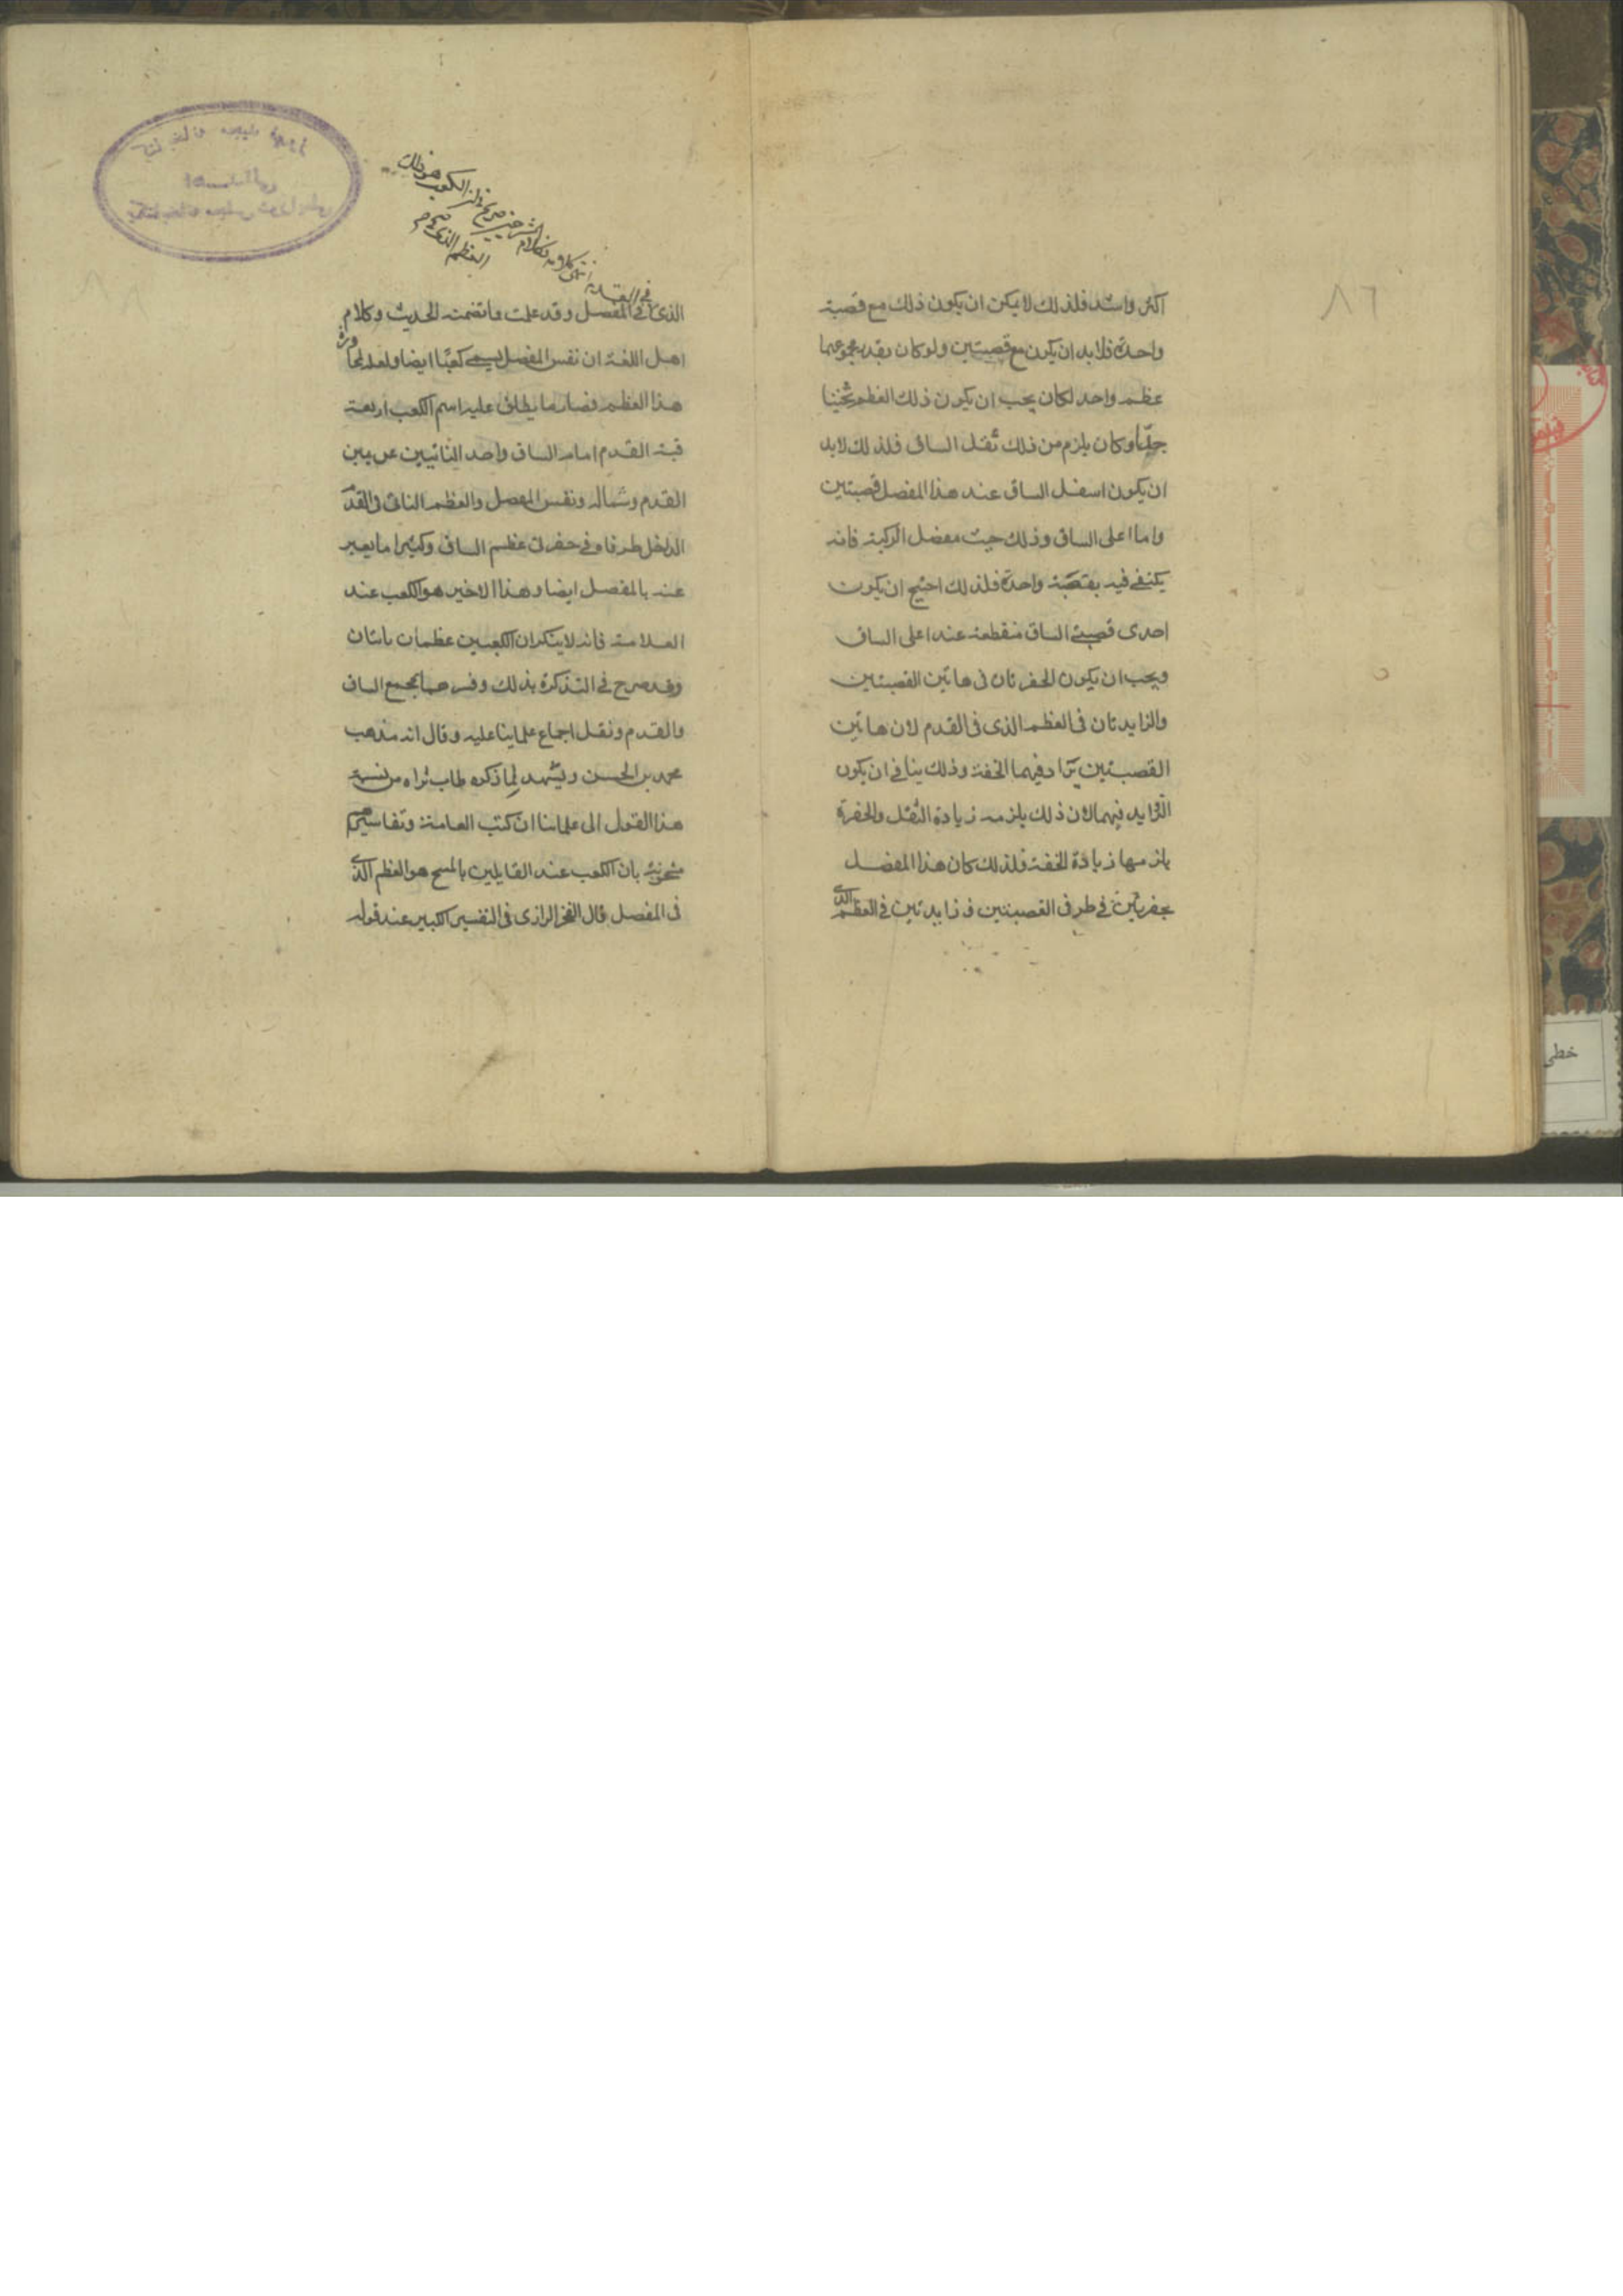 اكثر واشد فلذلك لا يمكن ان يكون ذلك مع قصبة
واحدة فلا بد ان يكون مع قصبتين ولو كان بقدر مجموعهما
عظم واحد لكان يجب ان يكون ذلك العظم ثخينا
جدّا وكان يلزم من ذلك ثقل الساق فلذلك لا بد
ان يكون اسفل الساق عند هذا المفصل قصبتين
واما اعلى الساق وذلك حيث مفصل الركبة فانه
يكتفى فيه بقصبة واحدة فلذلك احتيج ان يكون
احدى قصبتى الساق منقطعة عند اعلى الساق
ويجب ان يكون الحفرتان فى هاتين القصبتين
والزايدتان فى العظم الذى فى القدم لان هاتين
القصبتين يراد فيهما الخفة وذلك ينافى ان يكون
الزوايد فيهما لان ذلك يلزمه زيادة الثقل والحفرة
يلزمها زيادة الخفة فلذلك كان هذا المفصل
بحفرتين فى طرفى القصبتين و زايدتين فى العظم الذى
فى القدم انتهى كلامه
العظم الذى
الذى فى المفصل وقد علمت ما تضمنه الحديث وكلام
اهل اللغة ان نفس المفصل يسمى كعبًا ايضا ولعله لمجاورة
هذا العظم فصار ما يطلق عليه اسم الكعب اربعة
قبة القدم امام الساق واحد الناتيين عن يمين
القدم وشماله ونفس المفصل والعظم الناتى فى القدم
الداخل طرفاه فى حفرتى عظم الساق وكثيرا ما يعبر
عنه بالمفصل ايضا وهذا الاخير هو الكعب عند
العلامة فانه لا ينكر ان الكعبين عظمان ناتئان
وقد صرح فى التذكرة بذلك وفسرهما بمجمع الساق
والقدم ونقل اجماع علماينا عليه وقال انه مذهب
محمد بن الحسن ويشهد لما ذكره طاب ثراه من نسبة
هذا القول الى علمائنا ان كتب العامة وتفاسيرهم
مشحونة بان الكعب عند القايلين بالمسح هو العظم الذى
فى المفصل قال الفخر الرازى فى التفسير الكبير عند قوله
٨٦
خطى